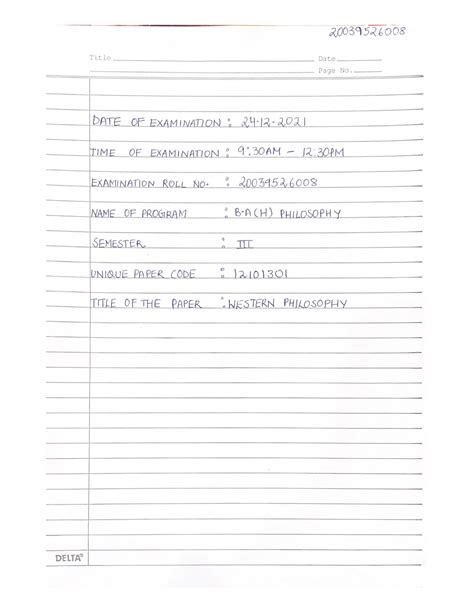 20039526008
Title Date
Page No.
DATE OF EXAMINATION : 24-12-2021
TIME OF EXAMINATION : 9:30AM – 12:30PM
EXAMINATION ROLL NO. : 20039526008
NAME OF PROGRAM : B.A(H) PHILOSOPHY
SEMESTER : III
UNIQUE PAPER CODE : 12101301
TITLE OF THE PAPER : WESTERN PHILOSOPHY
DELTA®